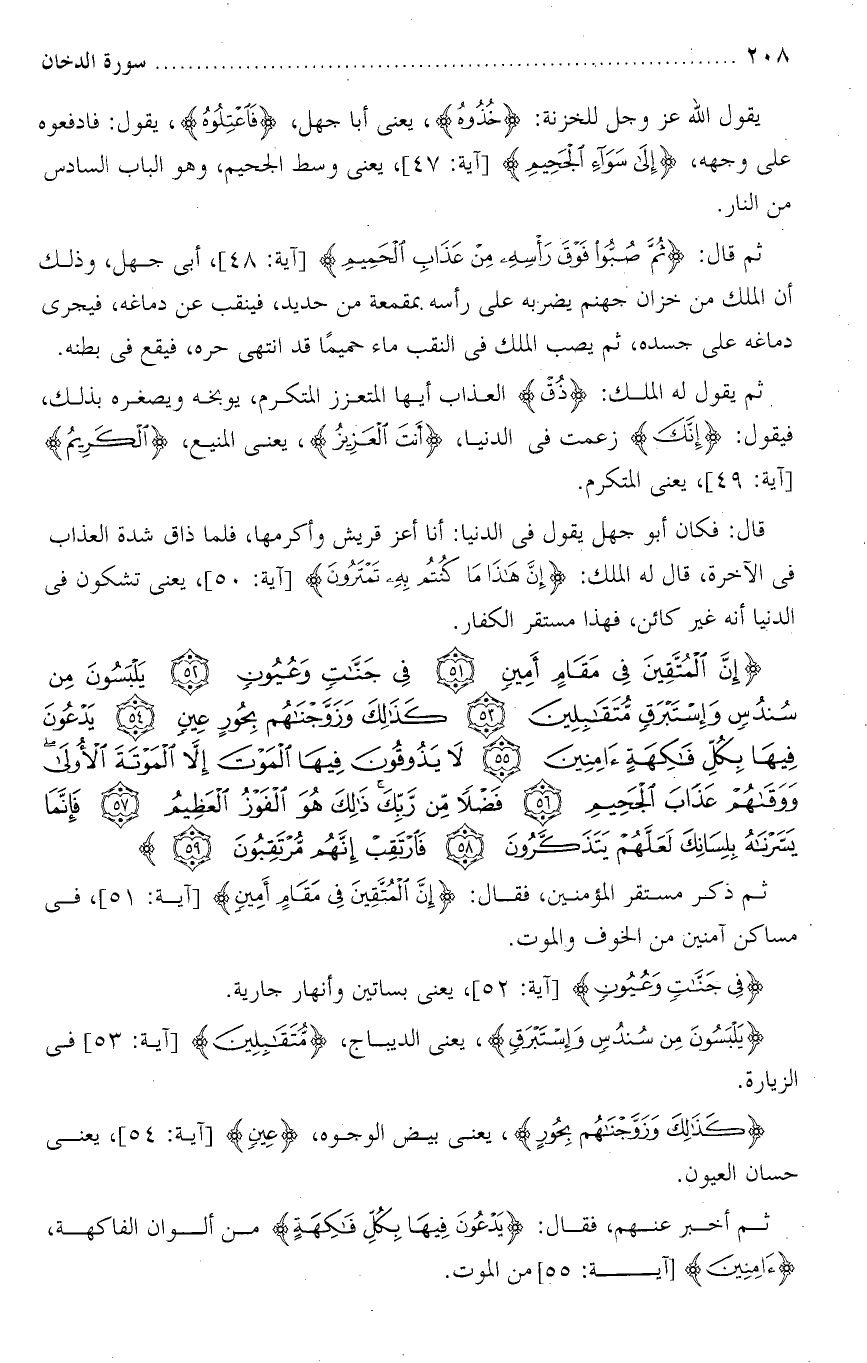 ٢٠٨ ........................................................................ سورة الدخان
يقول الله عز وجل للخزنة: ﴿خُذُوهُ﴾، يعنى أبا جهل، ﴿فَٱعْتِلُوهُ﴾، يقول: فادفعوه
على وجهه، ﴿إِلَىٰ سَوَآءِ ٱلْجَحِيمِ﴾ [آية: ٤٧]، يعنى وسط الجحيم، وهو الباب السادس
من النار.
ثم قال: ﴿ثُمَّ صُبُّوا۟ فَوْقَ رَأْسِهِۦ مِنْ عَذَابِ ٱلْحَمِيمِ﴾ [آية: ٤٨]، أبى جهل، وذلك
أن الملك من خزان جهنم يضربه على رأسه بمقمعة من حديد، فينقب عن دماغه، فيجرى
دماغه على جسده، ثم يصب الملك فى النقب ماء حميمًا قد انتهى حره، فيقع فى بطنه.
ثم يقول له الملك: ﴿ذُقْ﴾ العذاب أيها المتعزز المتكرم، يوبخه ويصغره بذلك،
فيقول: ﴿إِنَّكَ﴾ زعمت فى الدنيا، ﴿أَنتَ ٱلْعَزِيزُ﴾، يعنى المنيع، ﴿ٱلْكَرِيمُ﴾
[آية: ٤٩]، يعنى المتكرم.
قال: فكان أبو جهل يقول فى الدنيا: أنا أعز قريش وأكرمها، فلما ذاق شدة العذاب
فى الآخرة، قال له الملك: ﴿إِنَّ هَـٰذَا مَا كُنتُم بِهِۦ تَمْتَرُونَ﴾ [آية: ٥٠]، يعنى تشكون فى
الدنيا أنه غير كائن، فهذا مستقر الكفار.
﴿إِنَّ ٱلْمُتَّقِينَ فِى مَقَامٍ أَمِينٍ ٥١ فِى جَنَّـٰتٍ وَعُيُونٍ ٥٢ يَلْبَسُونَ مِن
سُندُسٍ وَإِسْتَبْرَقٍ مُّتَقَـٰبِلِينَ ٥٣ كَذَٰلِكَ وَزَوَّجْنَـٰهُم بِحُورٍ عِينٍ ٥٤ يَدْعُونَ
فِيهَا بِكُلِّ فَـٰكِهَةٍ ءَامِنِينَ ٥٥ لَا يَذُوقُونَ فِيهَا ٱلْمَوْتَ إِلَّا ٱلْمَوْتَةَ ٱلْأُولَىٰ ۖ
وَوَقَىٰهُمْ عَذَابَ ٱلْجَحِيمِ ٥٦ فَضْلًا مِّن رَّبِّكَ ۚ ذَٰلِكَ هُوَ ٱلْفَوْزُ ٱلْعَظِيمُ ٥٧ فَإِنَّمَا
يَسَّرْنَـٰهُ بِلِسَانِكَ لَعَلَّهُمْ يَتَذَكَّرُونَ ٥٨ فَٱرْتَقِبْ إِنَّهُم مُّرْتَقِبُونَ ٥٩ ﴾
ثم ذكر مستقر المؤمنين، فقال: ﴿إِنَّ ٱلْمُتَّقِينَ فِى مَقَامٍ أَمِينٍ﴾ [آية: ٥١]، فى
مساكن آمنين من الخوف والموت.
﴿فِى جَنَّـٰتٍ وَعُيُونٍ﴾ [آية: ٥٢]، يعنى بساتين وأنهار جارية.
﴿يَلْبَسُونَ مِن سُندُسٍ وَإِسْتَبْرَقٍ﴾، يعنى الديباج، ﴿مُّتَقَـٰبِلِينَ﴾ [آية: ٥٣] فى
الزيارة.
﴿كَذَٰلِكَ وَزَوَّجْنَـٰهُم بِحُورٍ﴾، يعنى بيض الوجوه، ﴿عِينٍ﴾ [آية: ٥٤]، يعنى
حسان العيون.
ثم أخبر عنهم، فقال: ﴿يَدْعُونَ فِيهَا بِكُلِّ فَـٰكِهَةٍ﴾ من ألوان الفاكهة،
﴿ءَامِنِينَ﴾ [آية: ٥٥] من الموت.